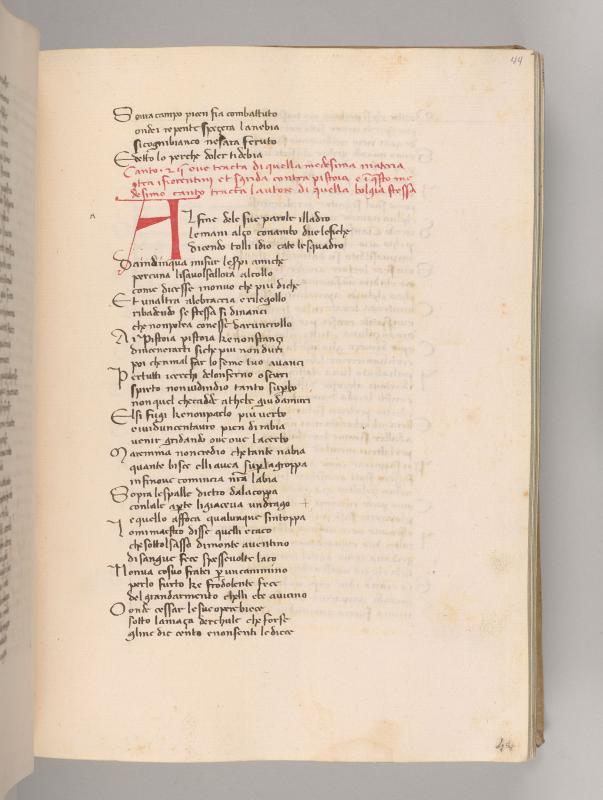 44
Soura campo picen fia combattuto
onde repente speçera lanebia
si cognibianco nesara feruto
Edetto lo perche doler tidebia
Canto 25 oue tracta di quella medesima materia
contra i fiorentini et sgrida contra pistoia e in questo me
desimo canto tracta lautore di quella bolgia stessa
Al fine dele sue parole illadro
le mani alço conambo due lefiche
dicendo tolli idio cate lesquadro
Daindinqua mifur leserpi amiche
percuna lisauolsellora alcollo
come dicesse nonuo che piu diche
Et unaltra alebraccia e rilegollo
ribadendo se stessa si dinanci
che nonpotea conesse darun crollo
Ai Pistoia pistoia ke nonstançi
dincenerarti siche piu non duri
poi chenmal far lo seme tuo auanci
Per tutti icerchi delonferno oscuri
spirto nonuidindio tanto superbo
non quel checadde athebe giu damuri
Elsi fugi ke nonparlo piu uerbo
e iuidi uncentauro pien di rabia
uenir gridando oue oue lacerbo
Maremma noncredio che tante nabia
quante bisce elli auea super lagroppa
infinoue comincia nostra labia
Sopra lespalle dietro dalacoppa
conlale aperte li giaceua undrago
e quello affoca qualunque sintoppa
Lomimaestro disse quelli e caco
che sottolsasso dimonte auentino
di sangue fece spesseuolte laco
Nonua cosuo fratei per un cammino
perlo furto ke frodolente fece
del grandarmento chelli ebe auicino
Onde cessar le sue opere biece
sotto lamaça derchule che forse
gline die cento enonsenti lediece
44